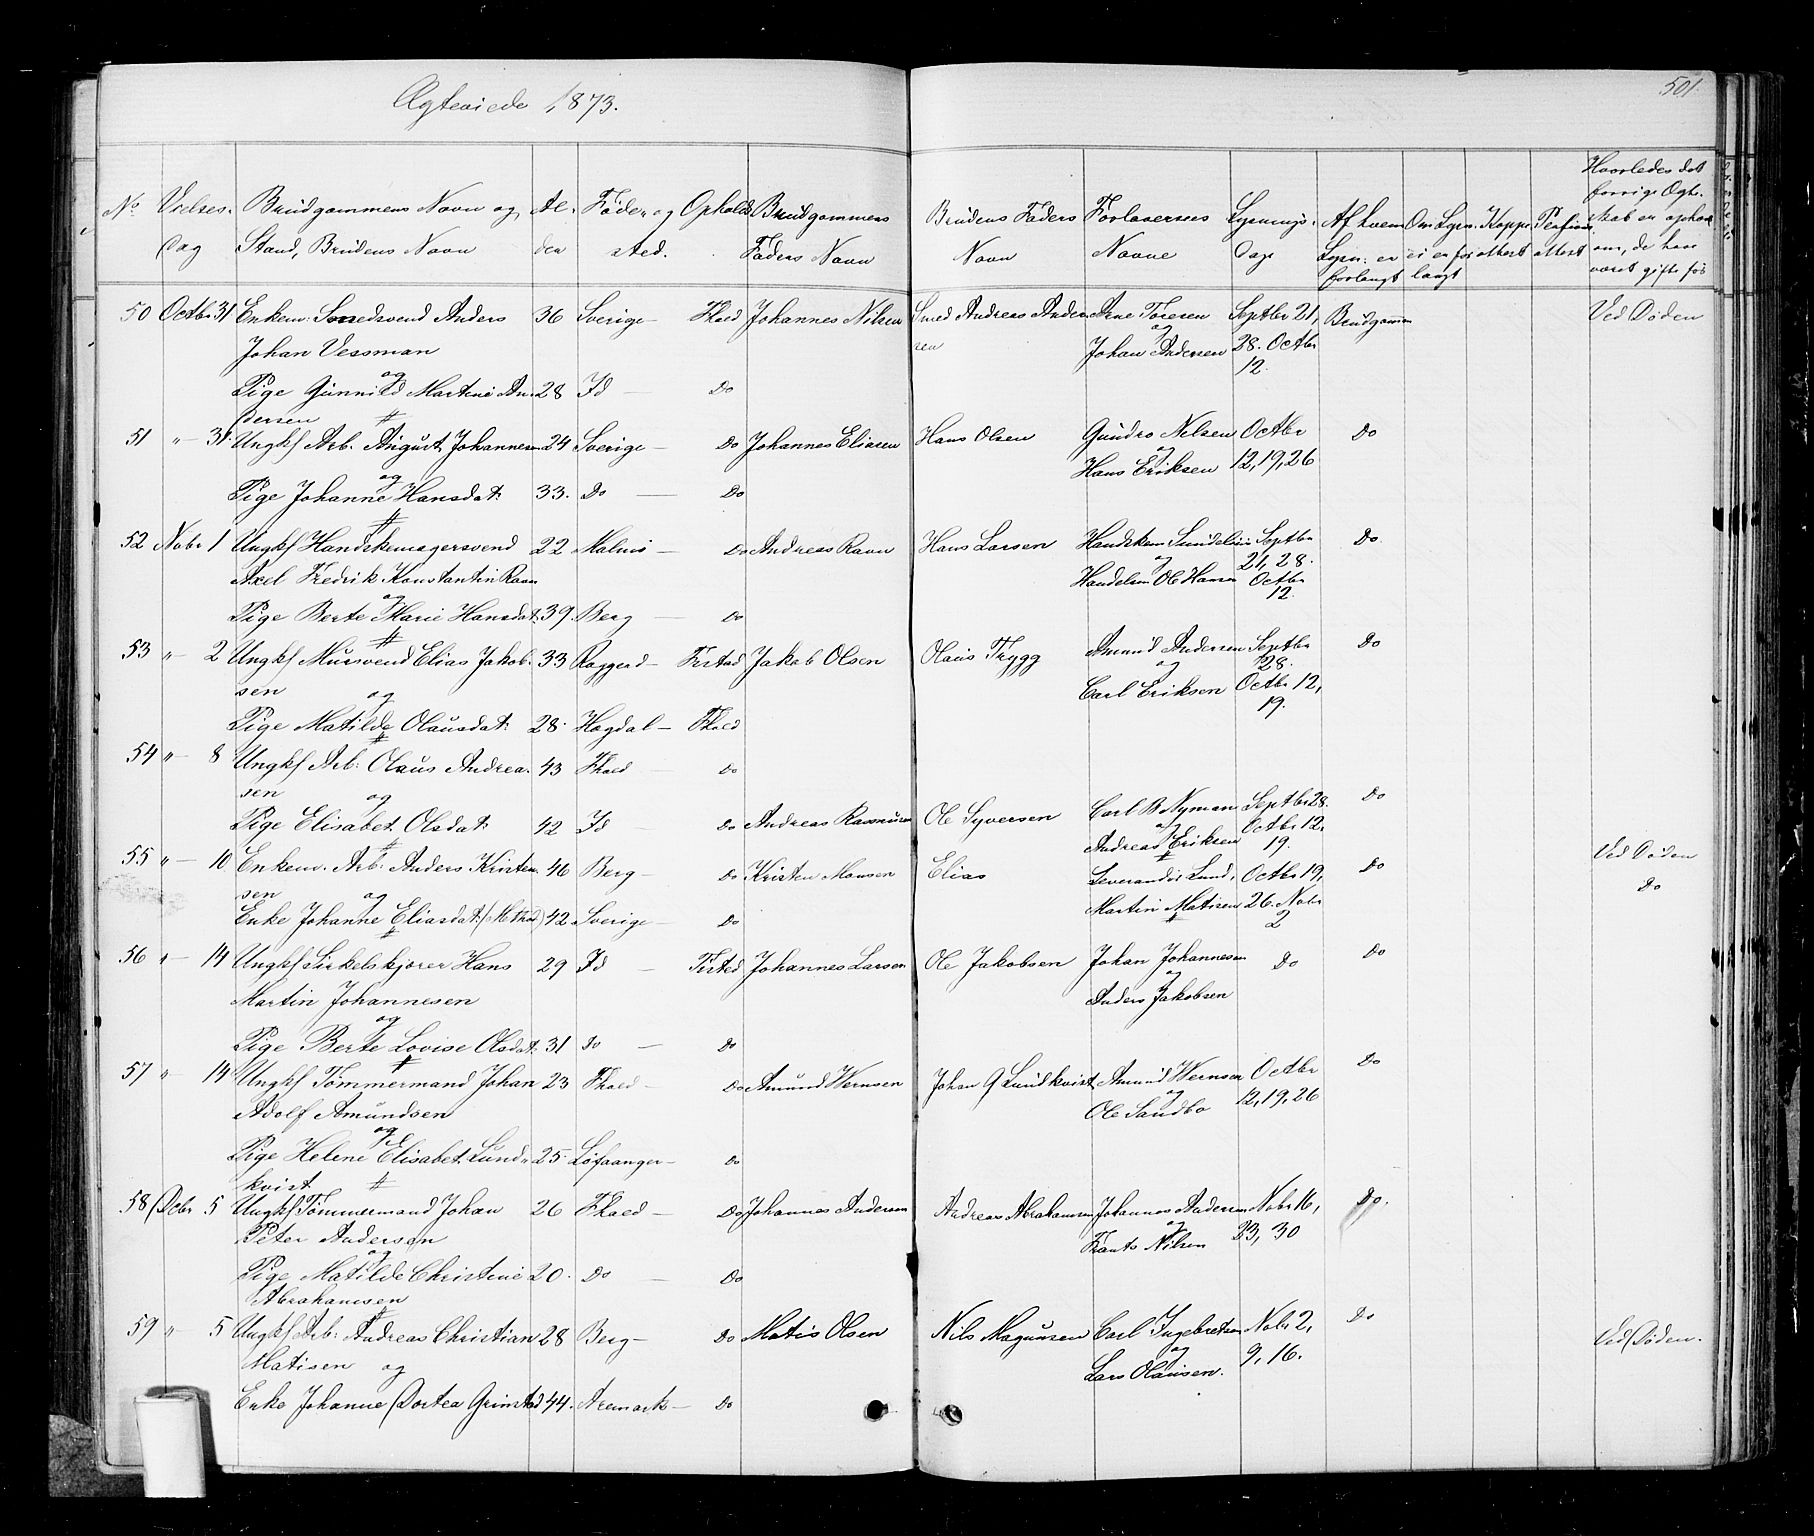 Ægteviede 1873.
501.
No. Vielses- Brudgommens Navn og Al- Føde og Opholds Brudgommens Brudens Faders Forlovernes Lysnings- Af hvem Om Lysn. Koppe Hvorledes det
dag Stand, Brudens Navn der sted. Faders Navn Navn Navne Dage Lysn: er ei er for attest attest forrige Ægte-
forlangt langt skab er ophæ
om, de have
været gifte før
50 Octbr 31 Enkem: Smedsvend Anders 36 Sverige - Fhald Johannes Nilsen Smed Andreas Ander Arne Toresen Septbr 21, Brudgommen Ved Døden
Johan Vessman sen og 28. Octbr
og Johan Andersen 12.
Pige Gunnild Martine An- 28 Id - Do
dersen
51 " - 31. Ungkf Arb. August Johannesen 24 Sverige - Do Johannes Eliasen Hans Olsen Gudro Nelsen Octbr Do
og og 12, 19, 26
Pige Johanne Hansdat: 33. Do - Do Hans Eriksen
52 Nobr 1 Ungkf Handskemagersvend 22 Malmø - Do Andreas Ravn Hans Larsen Handskem Sundelius Septbr Do
Axel Fredrik Konstantin Ravn og 21, 28.
og Handelsm Ole Hansen Octbr
Pige Berte Marie Hansdat: 39. Berg - Do 12.
53 " - 2 Ungkf Mursvend Elias Jakob- 33 Raggerd - Tisted Jakob Olsen Olaus Trygg Amund Andersen Septbr Do
sen og og 28.
Pige Matilde Olausdat: 28. Hogdal - Fhald Carl Eriksen Octbr 12,
19.
54 " - 8 Ungkf Arb: Olaus Andrea- 43 Fhald - Do
sen og
Pige Elisabet Olsdat: 42 Id - Do Andreas Rasmusen Ole Syversen Carl B Nyman Septbr 28. Do
og Octbr 12,
Andreas Eriksen 19.
55 " - 10 Enkem. Arb: Anders Kristen- 46 Berg - Do Kristen Monsen Elias Leverandør Lund, Octbr 19, Do Ved Døden
sen og Martin Matisen 26. Nobr Do
Enke Johanne Eliasdat: 42. Sverige - Do 2
56 " - 14 Ungkf Sirkelskjører Hans 29 Id - Tisted Johannes Larsen Ole Jakobsen Johan Johannesen Do Do
Martin Johannesen og
og Anders Jakobsen
Pige Berte Lovise Olsdat: 31 Do - Do
57 " - 14 Ungkf Tømmermand Johan 23 Fhald - Do Amund Wernsen Johan G Lundkvist Amund Wernsen Octbr Do
Adolf Amundsen og 12, 19, 26
og Ole Sandbo
Pige Helene Elisabet Lund- 25. Løfaanger - Do
kvist
58 Decbr 5 Ungkf Tømmermand Johan 26 Fhald - Do Johannes Andersen Andreas Abrahamsen Johannes Andersen Nobr 16, Do.
Peter Andersen og 23, 30
og Frants Nilsen
Pige Matilde Christine 20. Do - Do
Abrahamsen
59 " - 5 Ungkf Arb: Andreas Christian 28 Berg - Do Matis Olsen Nils Magnusen Carl Ingebretsen Nobr 2, Do Ved Døden.
Matisen og og 9, 16.
Enke Johanne Dortea Grimstad 44. Aremark - Do Lars Olausen.